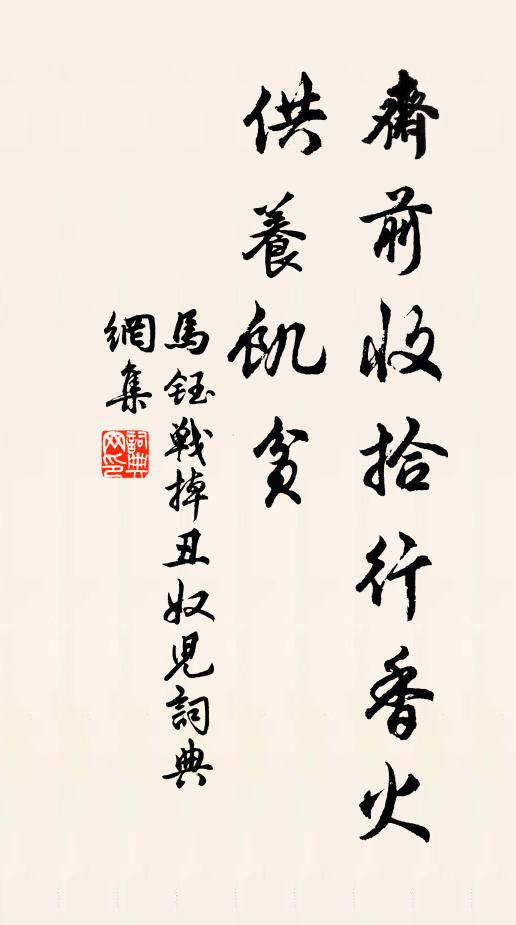 齋前收拾行香火
供養飢貧
馬鈺戰掉丑奴兒詞典
網集
詞典
网印